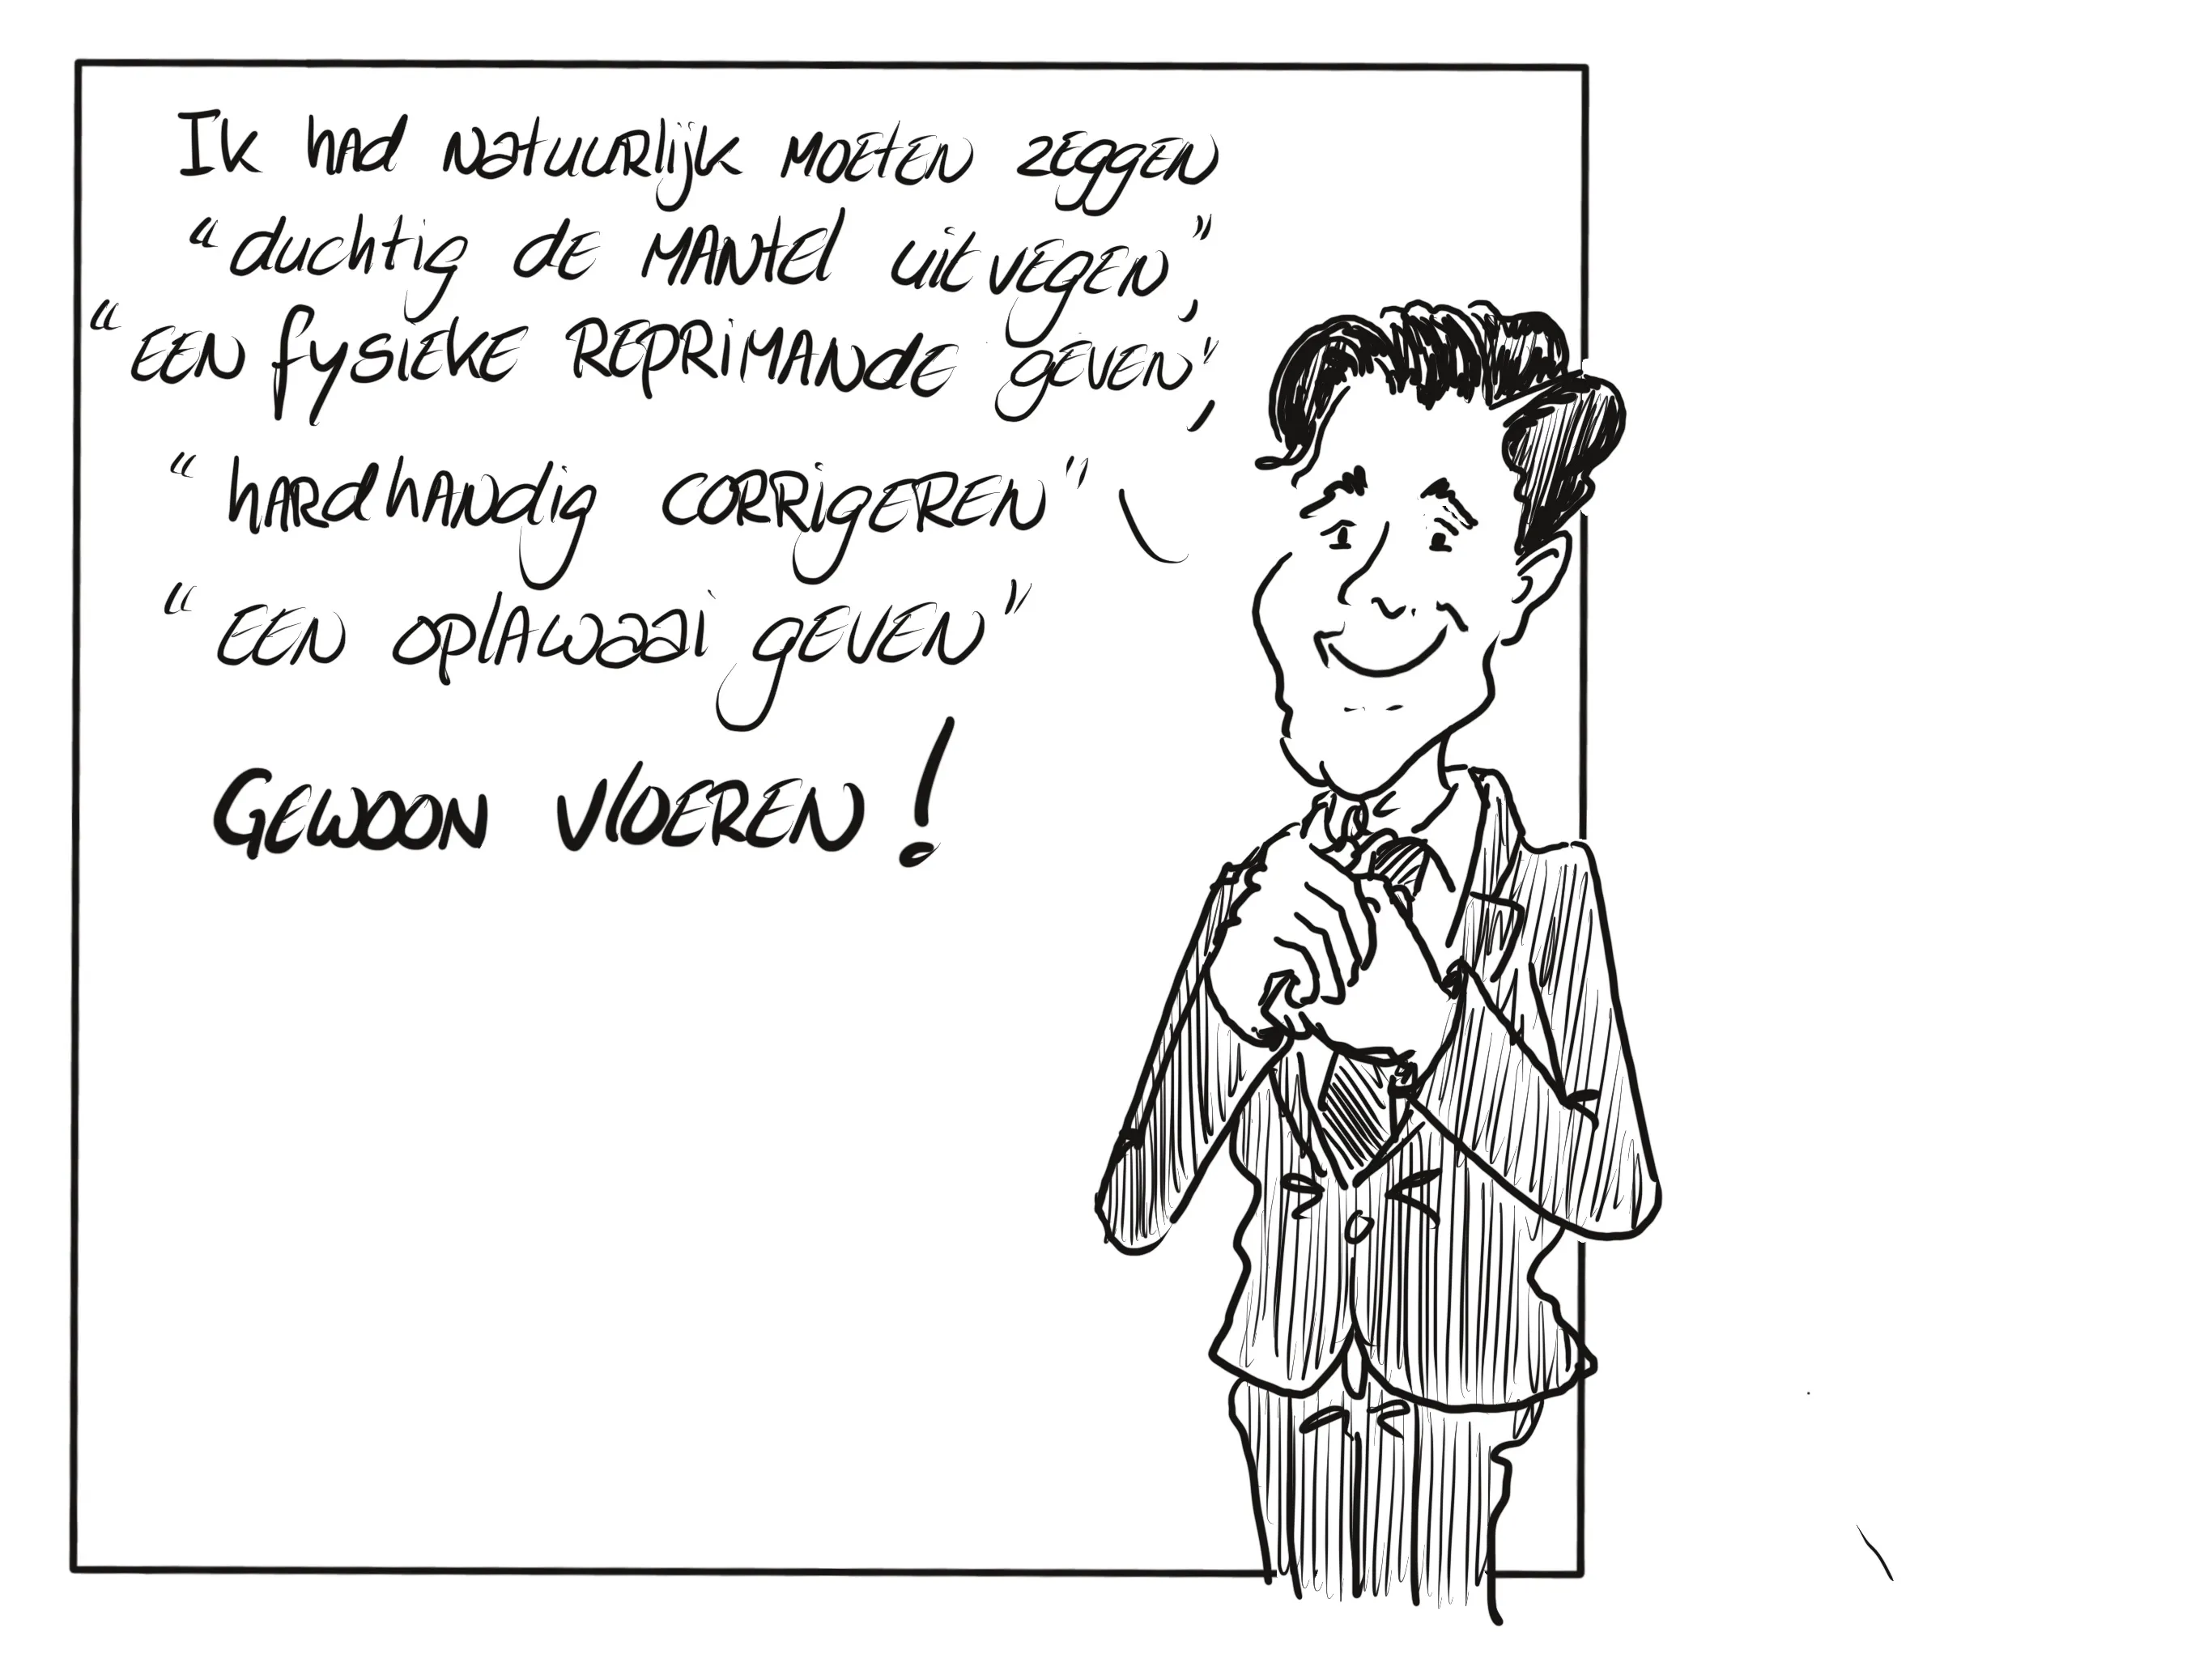 Ik had natuurlijk moeten zeggen
"duchtig de mantel uitvegen",
"een fysieke reprimande geven",
"hardhandig corrigeren"
"een oplawaai geven"
Gewoon vloeren!